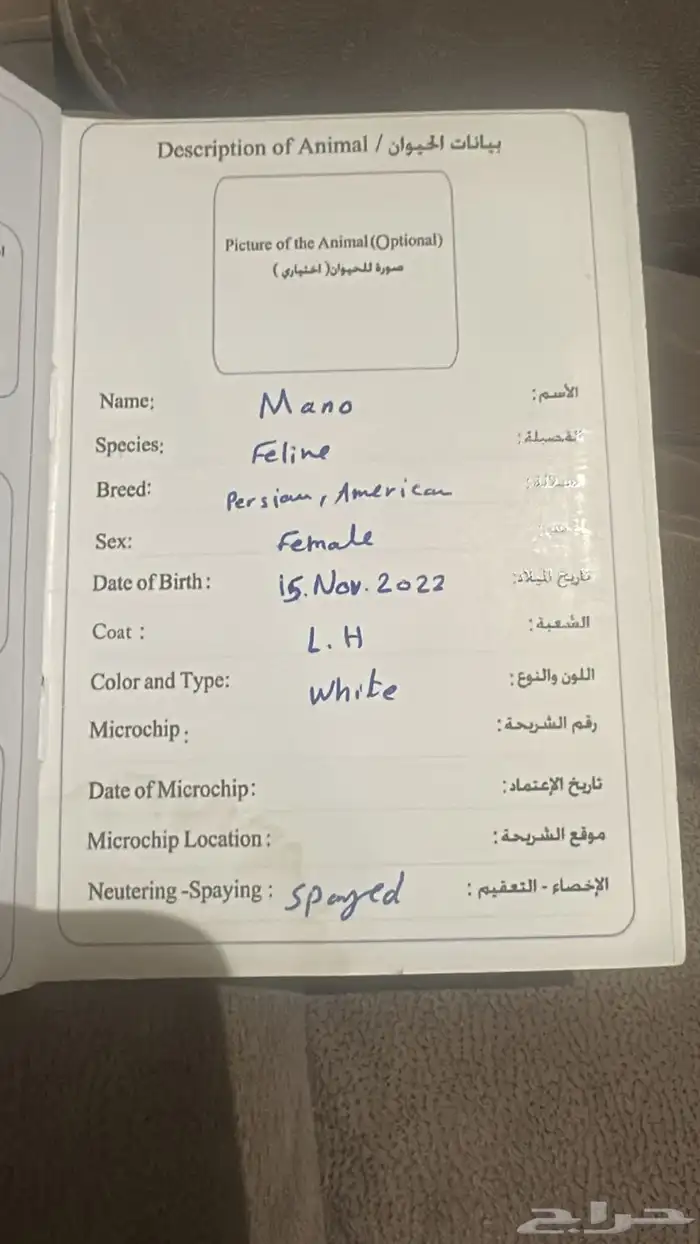 Description of Animal / بيانات الحيوان
Picture of the Animal (Optional)
صورة للحيوان( اختياري )
Name: Mano الأسم:
Species: Feline الفصيلة:
Breed: Persian, American السلالة:
Sex: Female
Date of Birth: 15. Nov. 2022 تاريخ الميلاد:
Coat : L.H الشعبة:
Color and Type: white اللون والنوع:
Microchip : رقم الشريحة:
Date of Microchip: تاريخ الإعتماد:
Microchip Location : موقع الشريحة:
Neutering -Spaying : spayed الإخصاء - التعقيم :
حراج